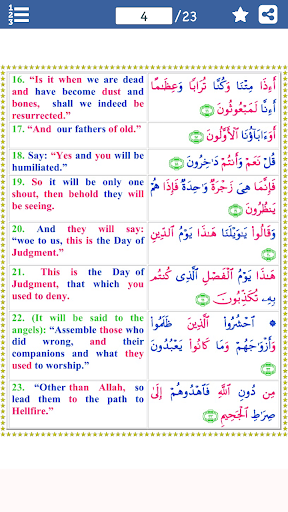 1
2
3
4 /23
16. “Is it when we are dead
and have become dust and
bones, shall we indeed be
be resurrected.”
أَءِذَا مِتْنَا وَكُنَّا تُرَابًا وَعِظَٰمًا
أَءِنَّا لَمَبْعُوثُونَ
17. “And our fathers of old.”
أَوَءَابَآؤُنَا ٱلْأَوَّلُونَ
18. Say: “Yes and you will be
humiliated.”
قُلْ نَعَمْ وَأَنتُمْ دَٰخِرُونَ
19. So it will be only one
shout, then behold they will
be seeing.
فَإِنَّمَا هِىَ زَجْرَةٌ وَٰحِدَةٌ فَإِذَا هُمْ
يَنظُرُونَ
20. And they will say:
“woe to us, this is the Day of
Judgment.”
وَقَالُوا۟ يَٰوَيْلَنَا هَٰذَا يَوْمُ ٱلدِّينِ
21. This is the Day of
Judgment, that which you
used to deny.
هَٰذَا يَوْمُ ٱلْفَصْلِ ٱلَّذِى كُنتُم
بِهِۦ تُكَذِّبُونَ
22. (It will be said to the
angels): “Assemble those who
did wrong, and their
companions and what they
used to worship.”
۞ ٱحْشُرُوا۟ ٱلَّذِينَ ظَلَمُوا۟
وَأَزْوَٰجَهُمْ وَمَا كَانُوا۟ يَعْبُدُونَ
23. “Other than Allah, so
lead them to the path to
Hellfire.”
مِن دُونِ ٱللَّهِ فَٱهْدُوهُمْ إِلَىٰ
صِرَٰطِ ٱلْجَحِيمِ